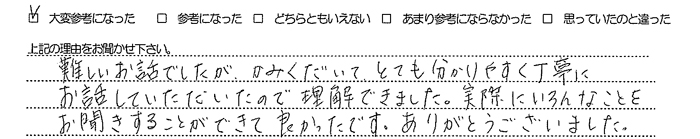 ☑ 大変参考になった □ 参考になった □ どちらともいえない □ あまり参考にならなかった □ 思っていたのと違った
上記の理由をお聞かせ下さい。
難しいお話でしたが、かみくだいて、とても分かりやすく丁寧に
お話していただいたので理解できました。実際にいろんなことを
お聞きすることができて良かったです。ありがとうございました。